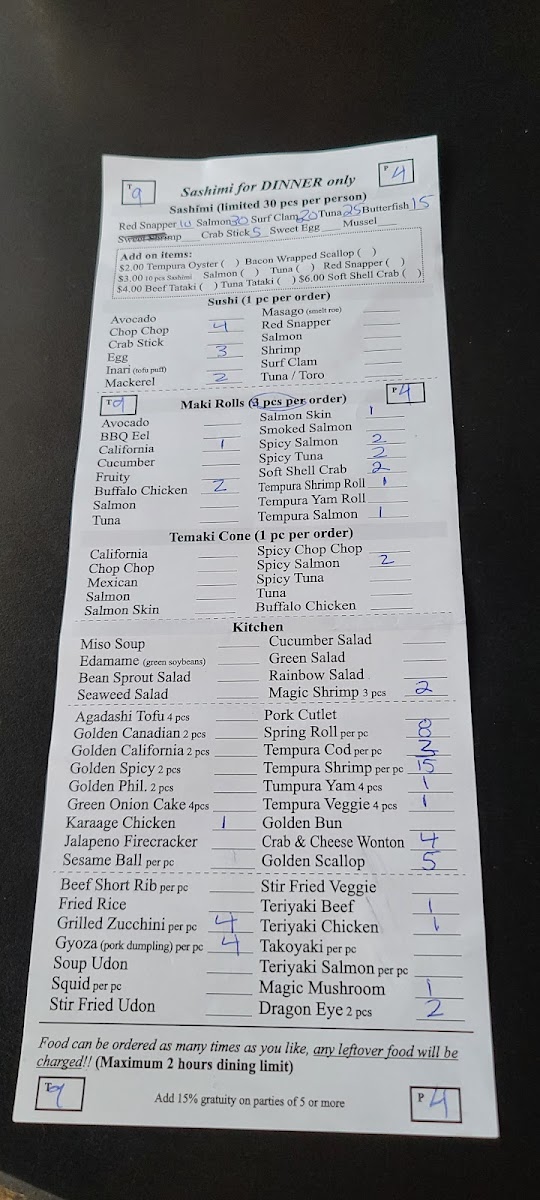 T 9 Sashimi for DINNER only P 4
Sashimi (limited 30 pcs per person)
Red Snapper 10 Salmon 30 Surf Clam 20 Tuna 25 Butterfish 15
Sweet Shrimp ___ Crab Stick 5 Sweet Egg ___ Mussel ___
Add on items:
$2.00 Tempura Oyster ( ) Bacon Wrapped Scallop ( )
$3.00 10 pcs Sashimi Salmon ( ) Tuna ( ) Red Snapper ( )
$4.00 Beef Tataki ( ) Tuna Tataki ( ) $6.00 Soft Shell Crab ( )
Sushi (1 pc per order)
Avocado ___ Masago (smelt roe) ___
Chop Chop 4 Red Snapper ___
Crab Stick ___ Salmon ___
Egg 3 Shrimp ___
Inari (tofu puff) ___ Surf Clam ___
Mackerel 2 Tuna / Toro ___
T 9 Maki Rolls (3 pcs per order) P 4
Avocado ___ Salmon Skin 1
BBQ Eel ___ Smoked Salmon ___
California 1 Spicy Salmon 2
Cucumber ___ Spicy Tuna 2
Fruity ___ Soft Shell Crab 2
Buffalo Chicken 2 Tempura Shrimp Roll 1
Salmon ___ Tempura Yam Roll ___
Tuna ___ Tempura Salmon 1
Temaki Cone (1 pc per order)
California ___ Spicy Chop Chop ___
Chop Chop ___ Spicy Salmon 2
Mexican ___ Spicy Tuna ___
Salmon ___ Tuna ___
Salmon Skin ___ Buffalo Chicken ___
Kitchen
Miso Soup ___ Cucumber Salad ___
Edamame (green soybeans) ___ Green Salad ___
Bean Sprout Salad ___ Rainbow Salad ___
Seaweed Salad ___ Magic Shrimp 3 pcs 2
Agadashi Tofu 4 pcs ___ Pork Cutlet ___
Golden Canadian 2 pcs ___ Spring Roll per pc 8
Golden California 2 pcs ___ Tempura Cod per pc 2
Golden Spicy 2 pcs ___ Tempura Shrimp per pc 15
Golden Phil. 2 pcs ___ Tumpura Yam 4 pcs 1
Green Onion Cake 4pcs ___ Tempura Veggie 4 pcs 1
Karaage Chicken 1 Golden Bun ___
Jalapeno Firecracker ___ Crab & Cheese Wonton 4
Sesame Ball per pc ___ Golden Scallop 5
Beef Short Rib per pc ___ Stir Fried Veggie ___
Fried Rice ___ Teriyaki Beef 1
Grilled Zucchini per pc 4 Teriyaki Chicken 1
Gyoza (pork dumpling) per pc 4 Takoyaki per pc ___
Soup Udon ___ Teriyaki Salmon per pc ___
Squid per pc ___ Magic Mushroom 1
Stir Fried Udon ___ Dragon Eye 2 pcs 2
Food can be ordered as many times as you like, any leftover food will be
charged!! (Maximum 2 hours dining limit)
T 9 Add 15% gratuity on parties of 5 or more P 4